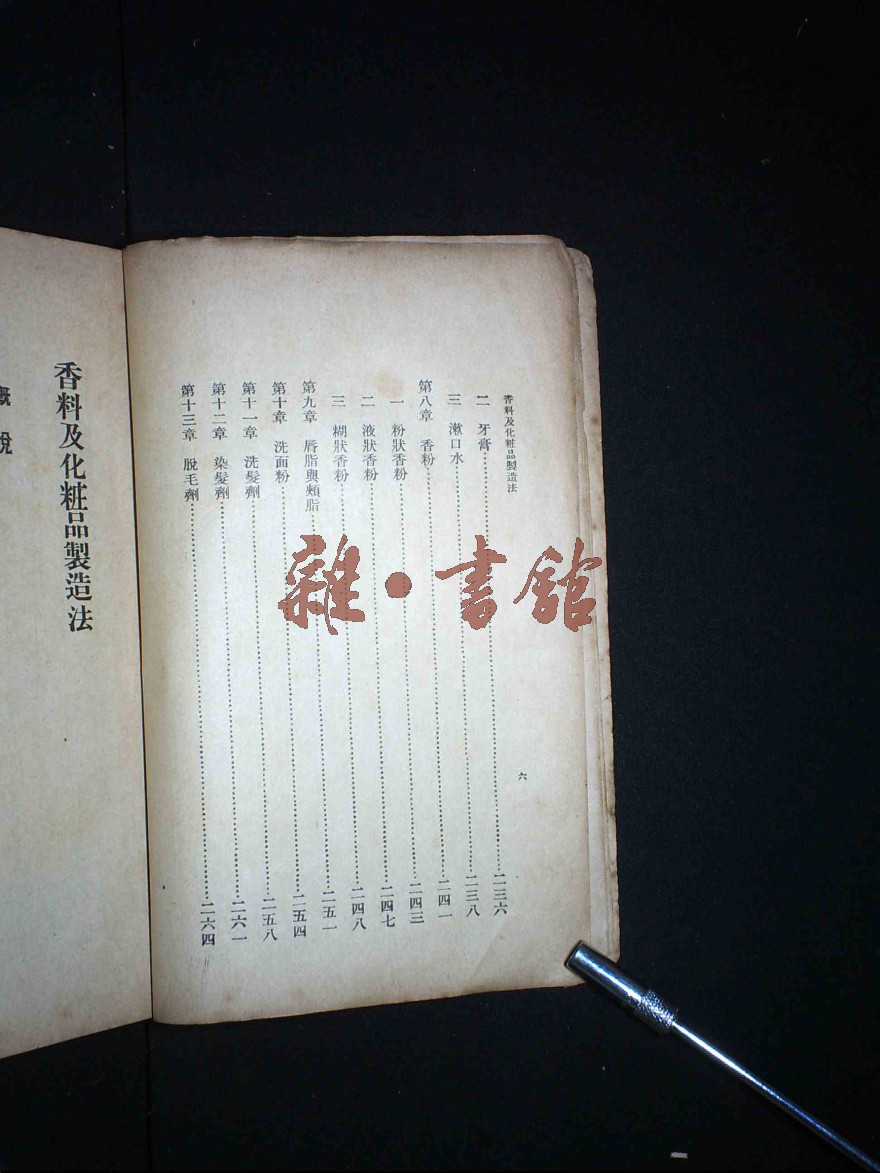 香料及化粧品製造法 六
二 牙膏……二三六
三 漱口水……二三八
第八章 香粉……二四一
一 粉狀香粉……二四三
二 液狀香粉……二四七
三 糊狀香粉……二四八
第九章 唇脂與頰脂……二五一
第十章 洗面粉……二五四
第十一章 洗髮劑……二五八
第十二章 染髮劑……二六一
第十三章 脫毛劑……二六四
香料及化粧品製造法
概說
雜·書館